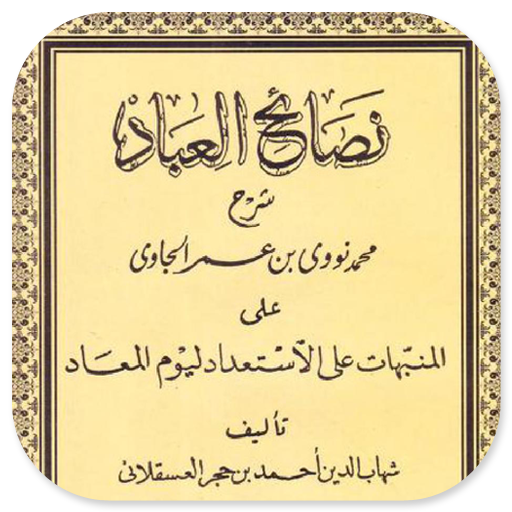 نَصَائِحُ الْعِبَادْ
شرح
محمد نووى بن عمر الجاوى
على
المنبّهات على الاسْتعداد ليوْم المعَاد
تأليف
شهاب الدين أحمد بن حجر العسقلانى